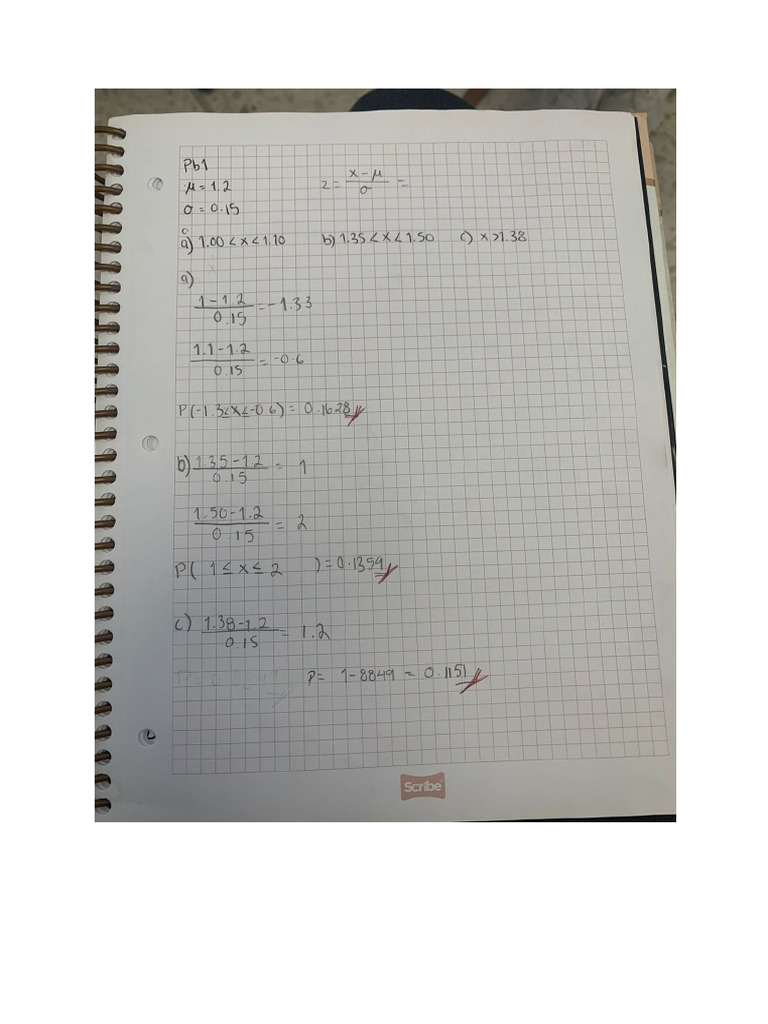 Pb1
μ = 1.2
z = x-μ / σ =
σ = 0.15
a) 1.00 < x < 1.10 b) 1.35 < x < 1.50 c) x > 1.38
a)
1 - 1.2 / 0.15 = -1.33
1.1 - 1.2 / 0.15 = -0.6
P(-1.3 ≤ x ≤ -0.6) = 0.1628
b) 1.35 - 1.2 / 0.15 = 1
1.50 - 1.2 / 0.15 = 2
P( 1 ≤ x ≤ 2 ) = 0.1359
c) 1.38 - 1.2 / 0.15 = 1.2
P = 1 - 8849 = 0.1151
Scribe